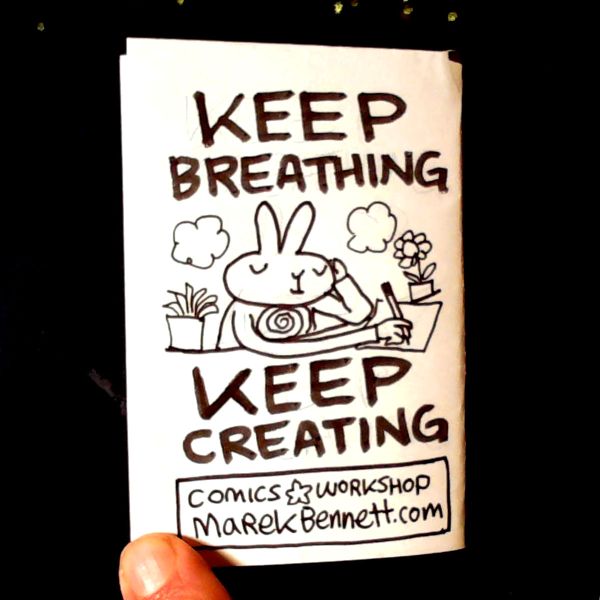 KEEP
BREATHING
KEEP
CREATING
COMICS WORKSHOP
MaRekBennett.com